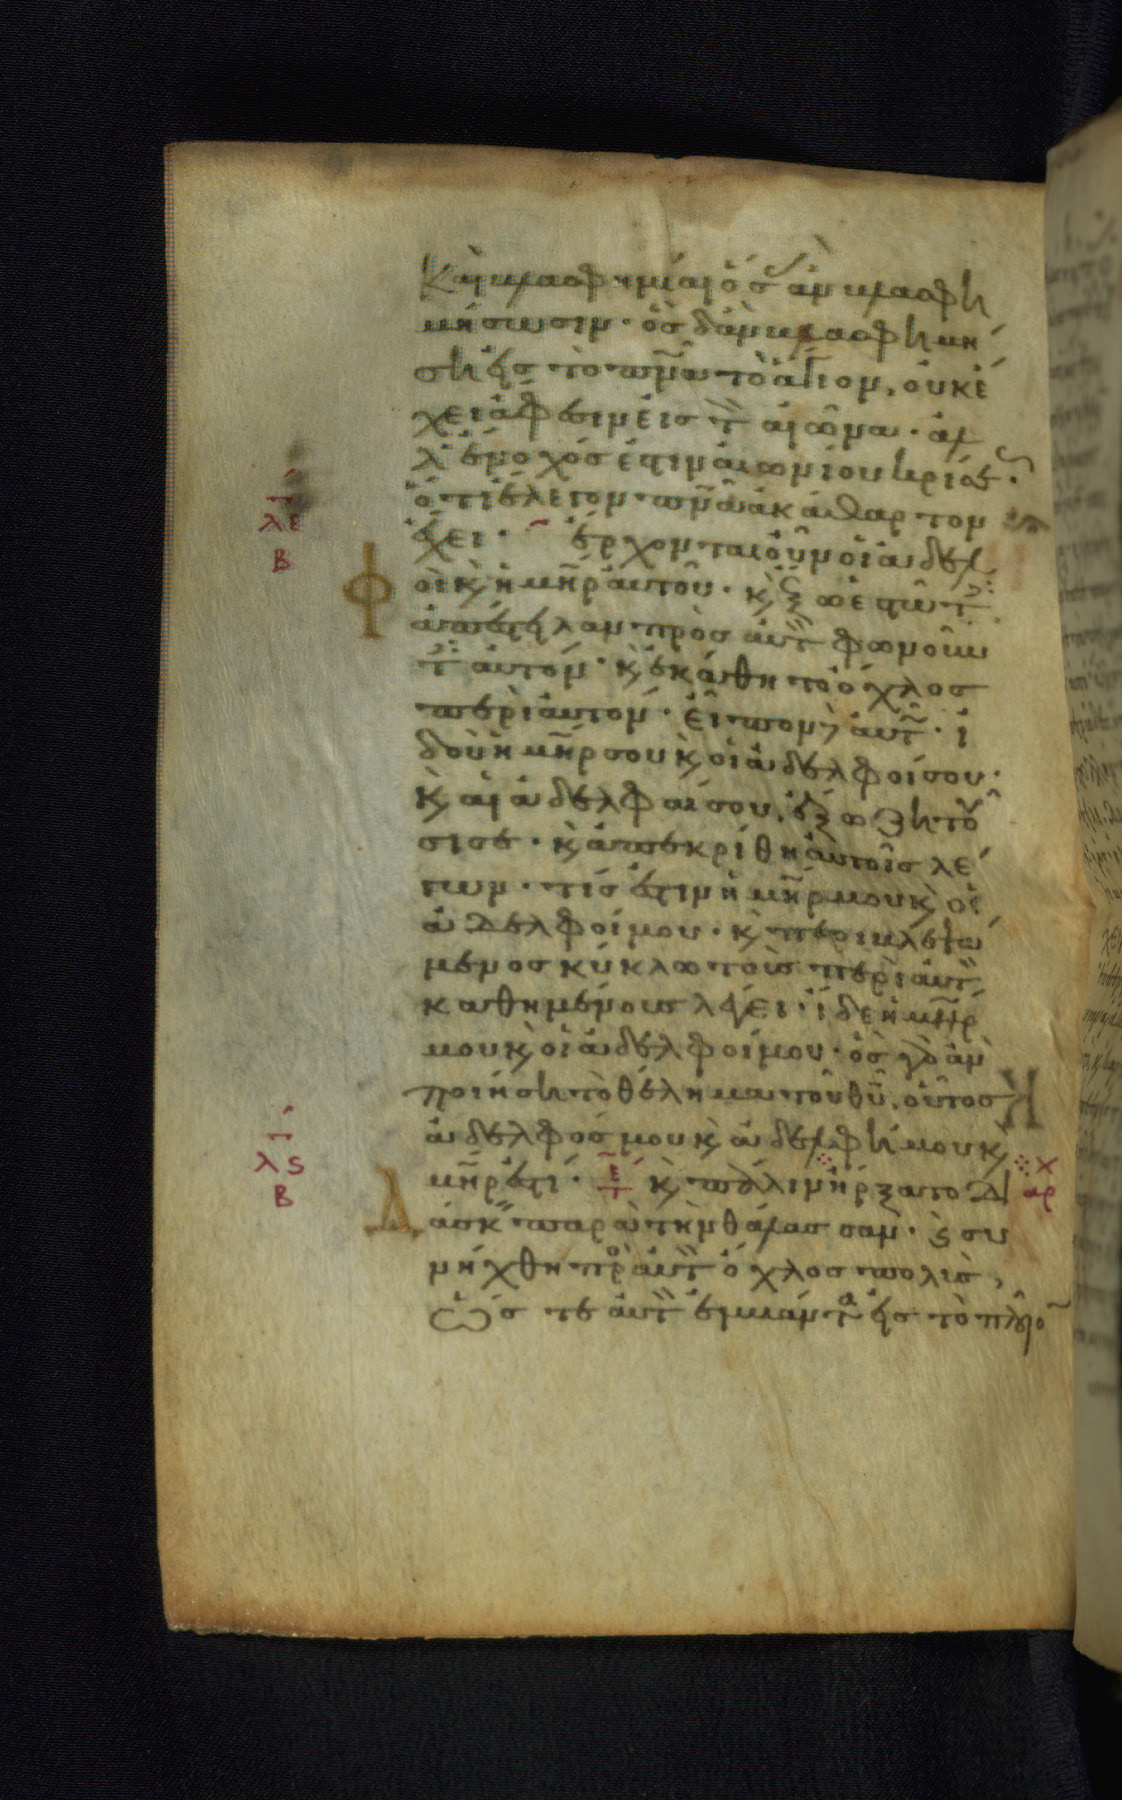 Καὶ βλασφημίαι ὅσας ἂν βλασφη
μήσωσιν· ὃς δ' ἂν βλασφημή
ση εἰς τὸ πν̅α τὸ ἅγιον, οὐκ ἔ
χει ἄφεσιν εἰς τ αἰῶνα· ἀλ
λ' ἔνοχός ἐστιν αἰωνίου κρίσεως·
ὅτι ἔλεγον πν̅α ἀκάθαρτον
ἔχει· ἔρχονται οὖν οἱ ἀδελ
Φ οὶ κ ἡ μη̅ρ αὐτοῦ· κ ἔξω ἑστῶτες
ἀπέστειλαν πρὸς αὐτ φωνοῦν
τες αὐτόν· κ ἐκάθητο ὄχλος
περὶ αὐτόν· εἶπον δὲ αὐτῶ· ἰ
δοὺ ἡ μη̅ρ σου κ οἱ ἀδελφοί σου·
κ αἱ ἀδελφαί σου, ἔξω ζητοῦ
σι σε· κ ἀπεκρίθη αὐτοῖς λέ
γων· τίς ἐστιν ἡ μη̅ρ μου κ οἱ
ἀδελφοί μου· κ περιβλεψά
μενος κύκλω τοὺς περὶ αὐτ
καθημένους λέγει· ἴδε ἡ μη̅ρ
μου κ οἱ ἀδελφοί μου· ὃς γὰρ ἂν
ποιήση τὸ θέλημα τοῦ θ̅υ, οὗτος
ἀδελφός μου κ ἀδελφή μου κ
μη̅ρ ἐστί· κ πάλιν ἤρξατο Δι
Δ άσκειν παρὰ τὴν θάλασσαν· κ συ
νήχθη πρὸς αὐτ ὄχλος πολὺς,
ὥστε αὐτ ἐμβάντα εἰς τὸ πλοῖο
λε
β
λς
β
αρχ